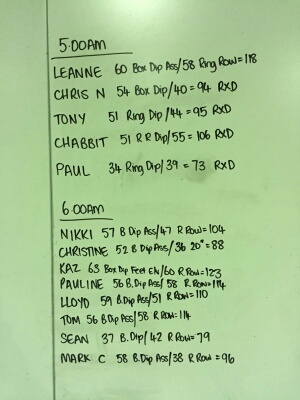 5:00AM
LEANNE 60 Box Dip Ass/58 Ring Row = 118
CHRIS N 54 Box Dip/40 = 94 RXD
TONY 51 Ring Dip/44 = 95 RXD
CHABBIT 51 R R Dip/55 = 106 RXD
PAUL 34 Ring Dip/39 = 73 RXD
6:00AM
NIKKI 57 B Dip Ass/47 R Row = 104
CHRISTINE 52 B Dip Ass/36 20" = 88
KAZ 63 Box Dip Feet EN/60 R Row = 123
PAULINE 56 B.Dip Ass/58 R Row = 114
LLOYD 59 B.Dip Ass/51 R Row = 110
TOM 56 B Dip Ass/58 R Row = 114
SEAN 37 B.Dip/42 R Row = 79
MARK C 58 B.Dip Ass/38 R Row = 96